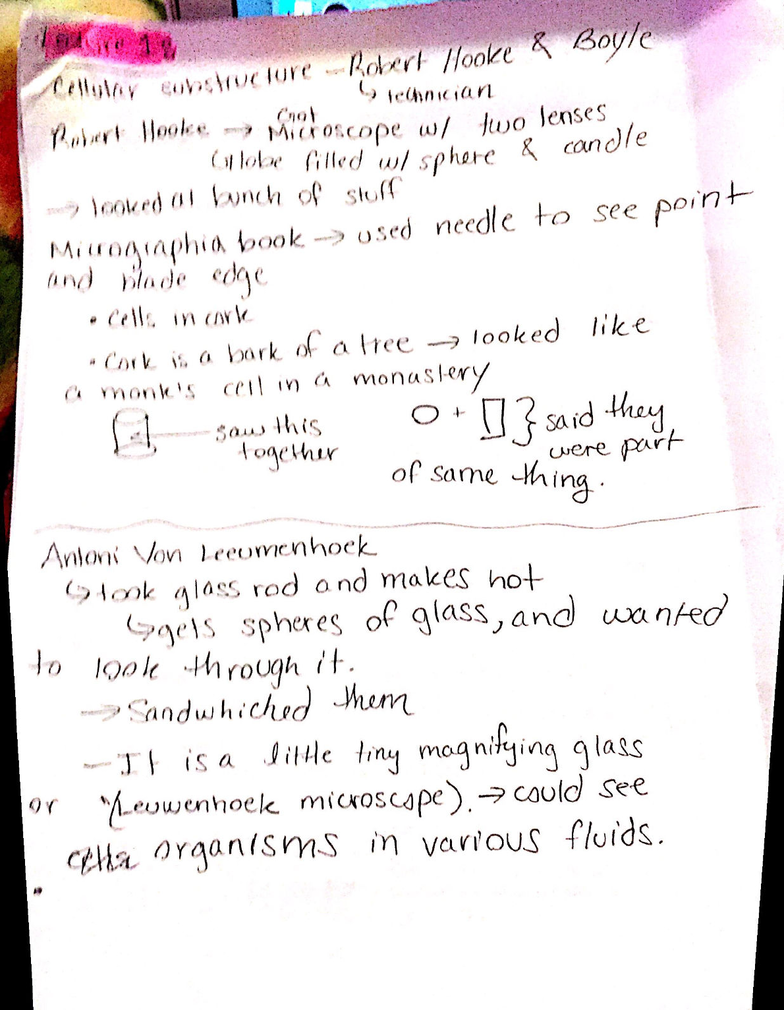 Lecture 1
Cellular substructure - Robert Hooke & Boyle
↳ technician
Robert Hooke → Microscope w/ two lenses
Globe filled w/ sphere & candle
→ looked at bunch of stuff
Micrographia book → used needle to see point
and blade edge
• Cells in cork
• Cork is a bark of a tree → looked like
a monk's cell in a monastery
saw this together
O + [] } said they were part
of same thing.
Antoni Von Leeumenhoek
↳ took glass rod and makes hot
↳ gets spheres of glass, and wanted
to look through it.
→ Sandwhiched them
- It is a little tiny magnifying glass
or "(Leuwenhoek microscope). → could see
organisms in various fluids.